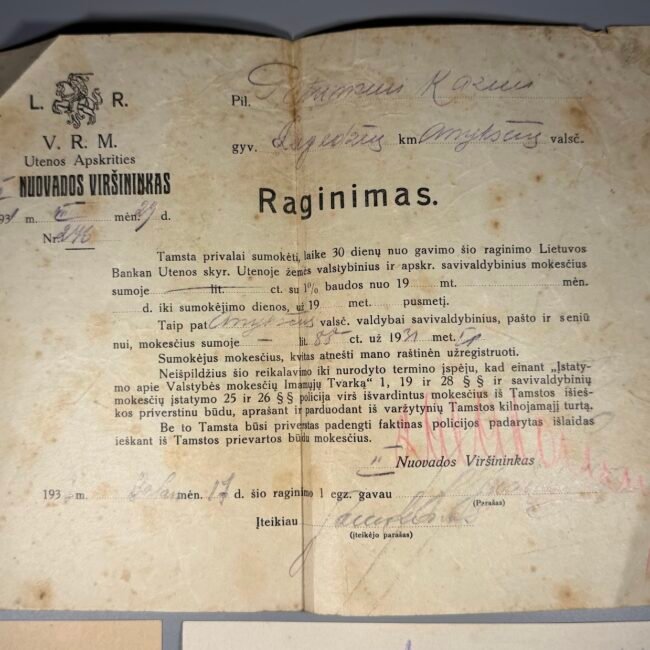 L. R.
V. R. M.
Utenos Apskrities
NUOVADOS VIRŠININKAS
193 m. mėn. 29 d.
Nr. 276
Pil. Kazui
gyv. km. Anykščių valsč.
Raginimas.
Tamsta privalai sumokėti, laike 30 dienų nuo gavimo šio raginimo Lietuvos
Bankan Utenos skyr. Utenoje žemės valstybinius ir apskr. savivaldybinius mokesčius
sumoje lit. ct. su 1% baudos nuo 19 mt. mėn.
d. iki sumokėjimo dienos, už 19 met. pusmetį.
Taip pat Anykščių valsč. valdybai savivaldybinius, pašto ir seniū
nui, mokesčius sumoje – lit. 85 ct. už 1931 met.
Sumokėjus mokesčius, kvitas atnešti mano raštinėn užregistruoti.
Neišpildžius šio reikalavimo iki nurodyto termino įspėju, kad einant „Įstaty-
mo apie Valstybės mokesčių Imamųjų Tvarką“ 1, 19 ir 28 §§ ir savivaldybinių
mokesčių įstatymo 25 ir 26 §§ policija virš išvardintus mokesčius iš Tamstos išieš-
kos priverstinu būdu, aprašant ir parduodant iš varžytynių Tamstos kilnojamąjį turtą.
Be to Tamsta būsi priverstas padengti faktinas policijos padarytas išlaidas
ieškant iš Tamstos prievartos būdu mokesčius.
Nuovados Viršininkas
193 m. mėn. 17 d. šio raginimo 1 egz. gavau
(Parašas)
Įteikiau
(įteikėjo parašas)